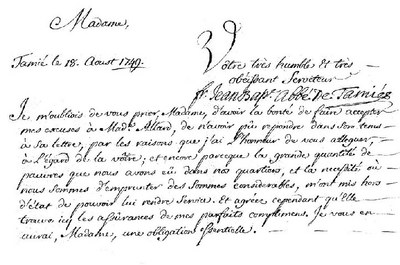 Madame,
Tamié le 18. Aoust 1749.
Vôtre très humble et très
obéissant Serviteur
fr. Jean Bapt. Abbé De Tamiez
Je m'oubliois de vous prier, Madame, d'avoir la bonté de faire accepter
mes excuses à Made. Allard, de n'avoir pû répondre dans son tems
à sa lettre, par les raisons que j'ai l'honneur de vous alleguer,
à l'égard de la vôtre; et encore parceque la grande quantité de
pauvres que nous avons eû dans nos quartiers, et la necessité où
nous sommes d'emprunter des sommes considerables, m'ont mis hors
d'état de pouvoir lui rendre service. Et agrée cependant qu'Elle
trouve icy les assurances de mes parfaits complimens. Je vous en
aurai, Madame, une obligation essentiele.